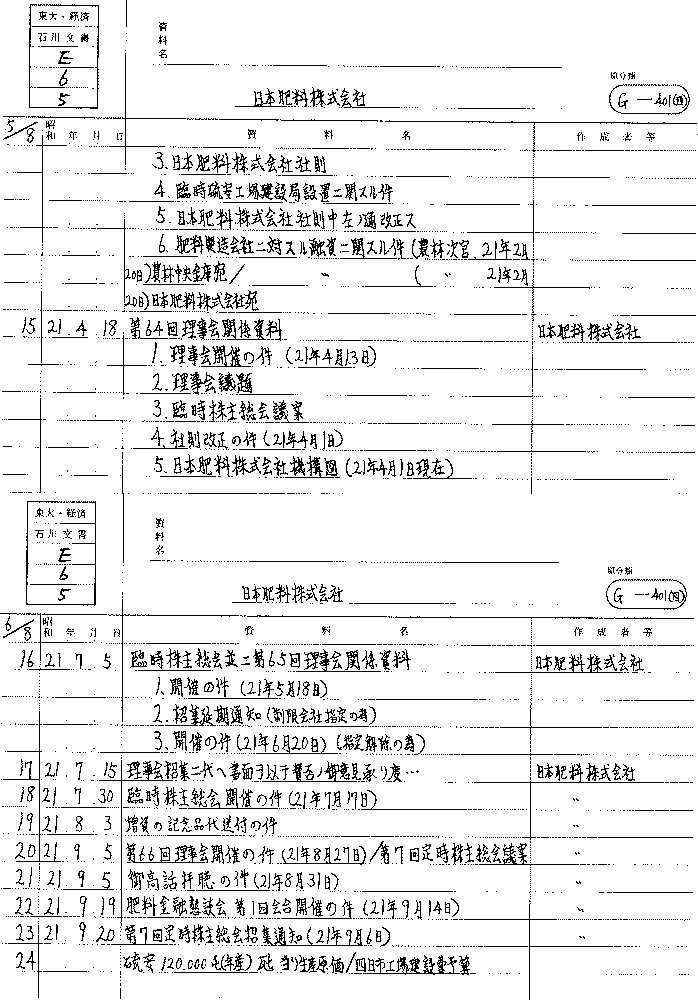 東大・経済
石川文書
E
6
5
資料名
日本肥料株式会社
原分類
G-401(四)
5/8 昭和 年 月 日 資 料 名 作成者等
3. 日本肥料株式会社社則
4. 臨時硫安工場建設局設置ニ関スル件
5. 日本肥料株式会社社則中左ノ通改正ス
6. 肥料製造会社ニ対スル融資ニ関スル件(農林次官 21年2月
20日)農林中央金庫宛/ 〃 ( 〃 21年2月
20日)日本肥料株式会社宛
15 21. 4. 18 第64回理事会関係資料 日本肥料株式会社
1. 理事会開催の件 (21年4月13日)
2. 理事会議題
3. 臨時株主総会議案
4. 社則改正の件 (21年4月1日)
5. 日本肥料株式会社機構図 (21年4月1日現在)
東大・経済
石川文書
E
6
5
資料名
日本肥料株式会社
原分類
G-401(四)
6/8 昭和 年 月 日 資 料 名 作成者等
16 21 7 5 臨時株主総会並ニ第65回理事会関係資料 日本肥料株式会社
1. 開催の件 (21年5月18日)
2. 招集延期通知 (制限会社指定の為)
3. 開催の件 (21年6月20日) (指定解除の為)
17 21. 7. 15 理事会招集ニ代ヘ書面ヲ以テ賛否ノ御意見承り度… 日本肥料株式会社
18 21 7 30 臨時株主総会開催の件 (21年7月17日) 〃
19 21 8 3 増資の記念品代送付の件 〃
20 21. 9. 5 第66回理事会開催の件 (21年8月27日)/第7回定時株主総会議案 〃
21 21 9 5 御高話拝聴の件 (21年8月31日) 〃
22 21. 9 19 肥料金融懇談会 第1回会合開催の件 (21年9月14日) 〃
23 21. 9 20 第7回定時株主総会招集通知 (21年9月6日) 〃
24 硫安 120,000屯(年産) 屯当り生産原価/四日市工場建設費予算